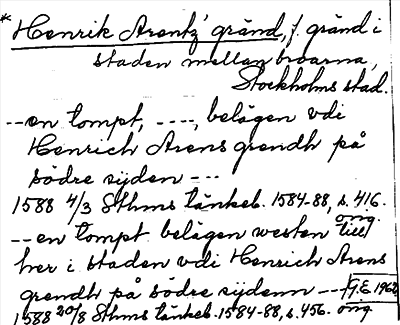 * Henrik Arentz' gränd, f. gränd i
staden mellan broarna,
Stockholms stad.
--en tompt, ----, belägen vdi
Henrich Arens grendh på
södre sijden ---
1588 4/3 Sthms tänkeb. 1584-88, s. 416.
orig.
--en tompt belägen westen till
her i staden vdi Henrich Arens
grendh på södre sijdenn ---
G.E. 1962
1588 20/8 Sthms tänkeb. 1584-88, s. 456. orig.